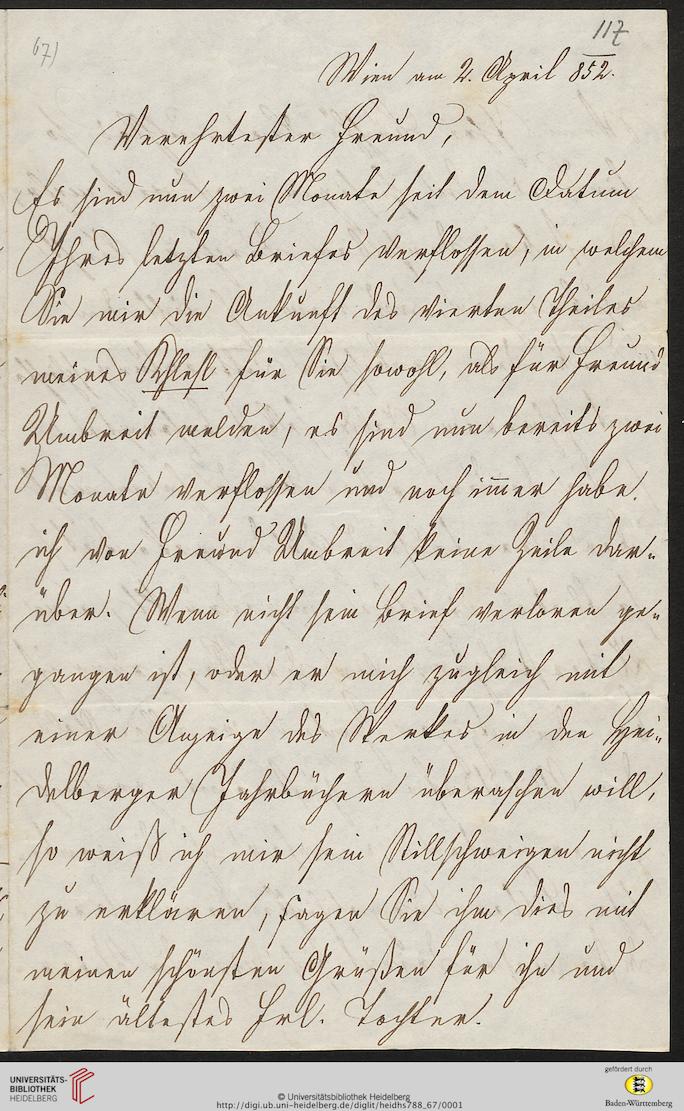 67)
117
Wien am 2. April 852.
Verehrtester Freund,
Es sind nun zwei Monate seit dem Datum
Ihres letzten Briefes verflossen, in welchem
Sie mir die Ankunft des vierten Theiles
meines Khlesl für Sie sowohl, als für Freund
Umbreit melden, es sind nun bereits zwei
Monate verflossen und noch im̅er habe
ich von Freund Umbreit keine Zeile dar-
über. Wenn nicht sein Brief verloren ge-
gangen ist, oder er mich zugleich mit
einer Anzeige des Werkes in den Hei-
delberger Jahrbüchern überaschen will,
so weiß ich mir sein Stillschweigen nicht
zu erklären, sagen Sie ihm dies mit
meinen schönsten Grüßen für ihn und
sein ältestes Frl. Tochter.
UNIVERSITÄTS-
BIBLIOTHEK
HEIDELBERG
© Universitätsbibliothek Heidelberg
http://digi.ub.uni-heidelberg.de/diglit/heidhs788_67/0001
gefördert durch
Baden-Württemberg